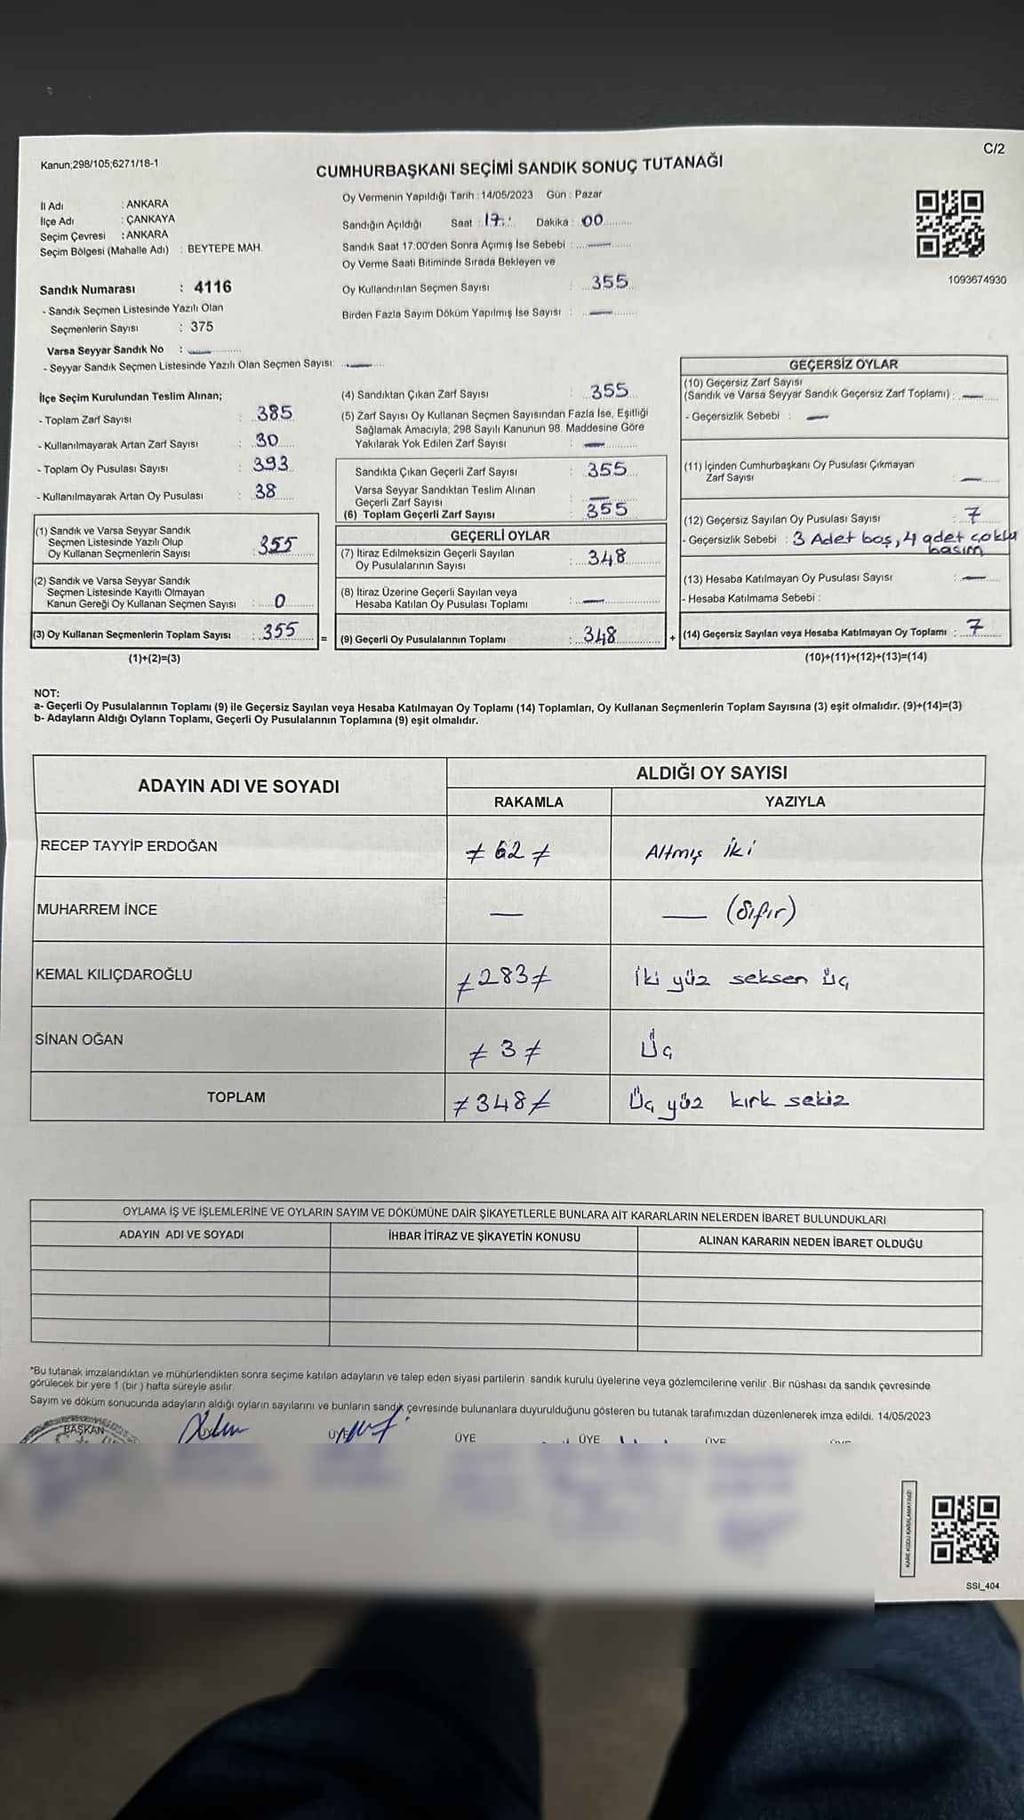 Kanun;298/105;6271/18-1
C/2
CUMHURBAŞKANI SEÇİMİ SANDIK SONUÇ TUTANAĞI
Oy Vermenin Yapıldığı Tarih : 14/05/2023 Gün : Pazar
İl Adı : ANKARA
İlçe Adı : ÇANKAYA
Seçim Çevresi : ANKARA
Seçim Bölgesi (Mahalle Adı) : BEYTEPE MAH.
Sandığın Açıldığı Saat : 17 Dakika : 00
Sandık Saat 17:00'den Sonra Açımış İse Sebebi : —
Oy Verme Saati Bitiminde Sırada Bekleyen ve
Oy Kullandırılan Seçmen Sayısı : 355
Birden Fazla Sayım Döküm Yapılmış İse Sayısı : —
1093674930
Sandık Numarası : 4116
- Sandık Seçmen Listesinde Yazılı Olan
Seçmenlerin Sayısı : 375
Varsa Seyyar Sandık No : —
- Seyyar Sandık Seçmen Listesinde Yazılı Olan Seçmen Sayısı: —
İlçe Seçim Kurulundan Teslim Alınan;
- Toplam Zarf Sayısı : 385
- Kullanılmayarak Artan Zarf Sayısı : 30
- Toplam Oy Pusulası Sayısı : 393
- Kullanılmayarak Artan Oy Pusulası : 38
(1) Sandık ve Varsa Seyyar Sandık
Seçmen Listesinde Yazılı Olup
Oy Kullanan Seçmenlerin Sayısı : 355
(2) Sandık ve Varsa Seyyar Sandık
Seçmen Listesinde Kayıtlı Olmayan
Kanun Gereği Oy Kullanan Seçmen Sayısı : 0
(3) Oy Kullanan Seçmenlerin Toplam Sayısı : 355
(1)+(2)=(3)
(4) Sandıktan Çıkan Zarf Sayısı : 355
(5) Zarf Sayısı Oy Kullanan Seçmen Sayısından Fazla İse, Eşitliği
Sağlamak Amacıyla; 298 Sayılı Kanunun 98. Maddesine Göre
Yakılarak Yok Edilen Zarf Sayısı : —
Sandıkta Çıkan Geçerli Zarf Sayısı : 355
Varsa Seyyar Sandıktan Teslim Alınan
Geçerli Zarf Sayısı : —
(6) Toplam Geçerli Zarf Sayısı : 355
GEÇERLİ OYLAR
(7) İtiraz Edilmeksizin Geçerli Sayılan
Oy Pusulalarının Sayısı : 348
(8) İtiraz Üzerine Geçerli Sayılan veya
Hesaba Katılan Oy Pusulası Toplamı : —
= (9) Geçerli Oy Pusulalarının Toplamı : 348
GEÇERSİZ OYLAR
(10) Geçersiz Zarf Sayısı
(Sandık ve Varsa Seyyar Sandık Geçersiz Zarf Toplamı) : —
- Geçersizlik Sebebi : —
(11) İçinden Cumhurbaşkanı Oy Pusulası Çıkmayan
Zarf Sayısı : —
(12) Geçersiz Sayılan Oy Pusulası Sayısı : 7
- Geçersizlik Sebebi : 3 Adet boş, 4 adet çoklu
basım
(13) Hesaba Katılmayan Oy Pusulası Sayısı : —
- Hesaba Katılmama Sebebi :
+ (14) Geçersiz Sayılan veya Hesaba Katılmayan Oy Toplamı : 7
(10)+(11)+(12)+(13)=(14)
NOT:
a- Geçerli Oy Pusulalarının Toplamı (9) ile Geçersiz Sayılan veya Hesaba Katılmayan Oy Toplamı (14) Toplamları, Oy Kullanan Seçmenlerin Toplam Sayısına (3) eşit olmalıdır. (9)+(14)=(3)
b- Adayların Aldığı Oyların Toplamı, Geçerli Oy Pusulalarının Toplamına (9) eşit olmalıdır.
ADAYIN ADI VE SOYADI ALDIĞI OY SAYISI
RAKAMLA YAZIYLA
RECEP TAYYİP ERDOĞAN ≠ 62 ≠ Altmış iki
MUHARREM İNCE — — (sıfır)
KEMAL KILIÇDAROĞLU ≠ 283 ≠ İki yüz seksen üç
SİNAN OĞAN ≠ 3 ≠ Üç
TOPLAM ≠ 348 ≠ Üç yüz kırk sekiz
OYLAMA İŞ VE İŞLEMLERİNE VE OYLARIN SAYIM VE DÖKÜMÜNE DAİR ŞİKAYETLERLE BUNLARA AİT KARARLARIN NELERDEN İBARET BULUNDUKLARI
ADAYIN ADI VE SOYADI İHBAR İTİRAZ VE ŞİKAYETİN KONUSU ALINAN KARARIN NEDEN İBARET OLDUĞU
*Bu tutanak imzalandıktan ve mühürlendikten sonra seçime katılan adayların ve talep eden siyasi partilerin sandık kurulu üyelerine veya gözlemcilerine verilir .Bir nüshası da sandık çevresinde
görülecek bir yere 1 (bir ) hafta süreyle asılır.
Sayım ve döküm sonucunda adayların aldığı oyların sayılarını ve bunların sandık çevresinde bulunanlara duyurulduğunu gösteren bu tutanak tarafımızdan düzenlenerek imza edildi. 14/05/2023
BAŞKAN ÜYE ÜYE ÜYE ÜYE
SSI_404